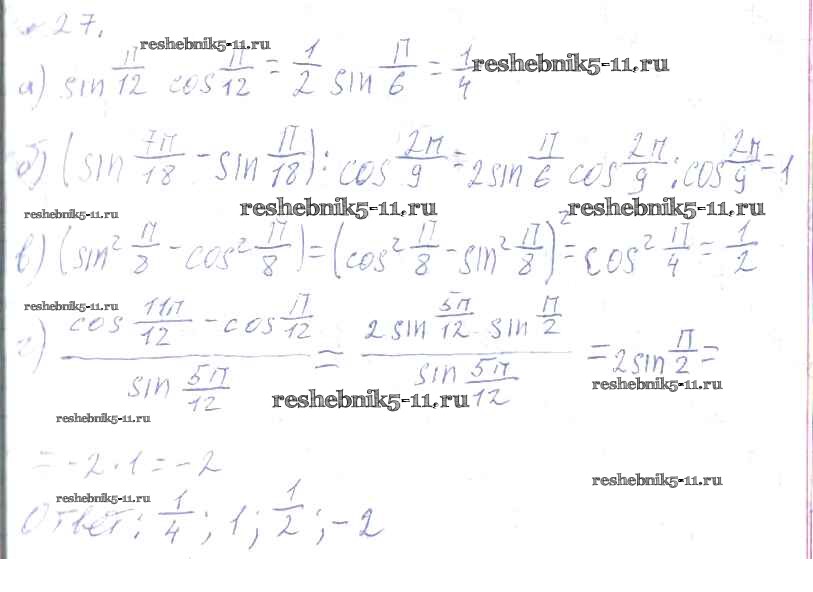 № 27.
resheBnik5-11.ru
а) sin π/12 cos π/12 = 1/2 sin π/6 = 1/4
resheBnik5-11.ru
б) (sin 7π/18 - sin π/18) : cos 2π/9 = 2sin π/6 cos 2π/9 : cos 2π/9 = 1
resheBnik5-11.ru resheBnik5-11.ru resheBnik5-11.ru
в) (sin² π/8 - cos² π/8) = (cos² π/8 - sin² π/8)² = cos² π/4 = 1/2
resheBnik5-11.ru
г) (cos 11π/12 - cos π/12)/(sin 5π/12) = (2 sin 5π/12 sin π/2)/(sin 5π/12) = 2sin π/2 =
resheBnik5-11.ru resheBnik5-11.ru
resheBnik5-11.ru
= -2 · 1 = -2
resheBnik5-11.ru
resheBnik5-11.ru
Ответ: 1/4; 1; 1/2; -2